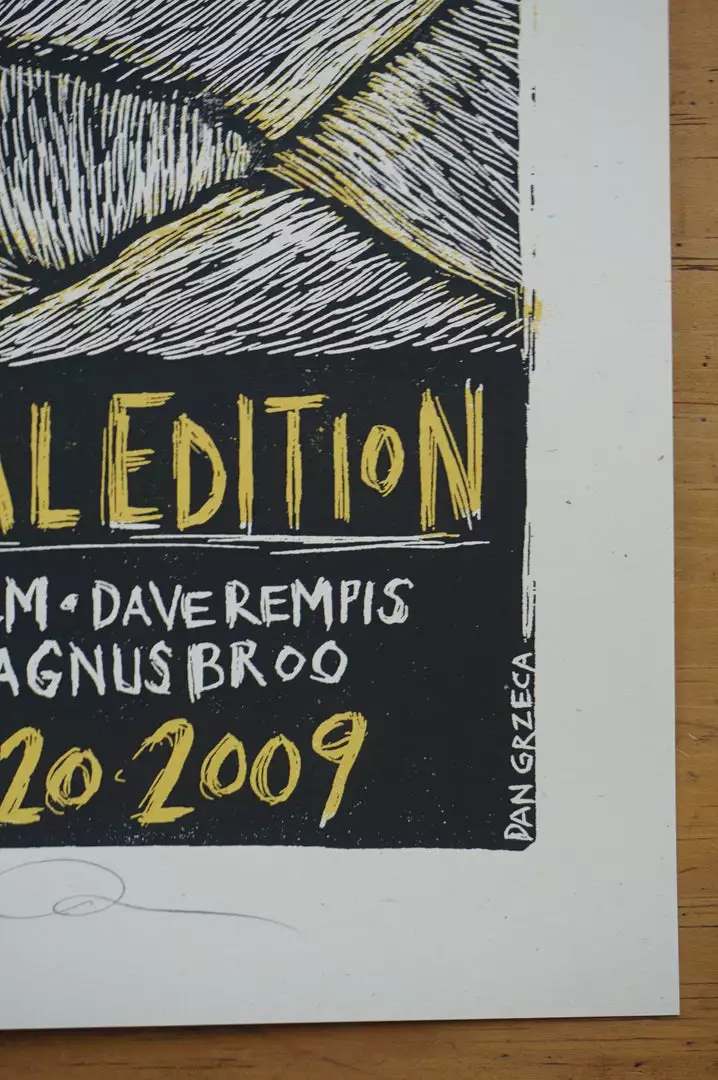 AL EDITION
LM • DAVE REMPIS
AGNUS BROO
20 • 2009
DAN GRZECA